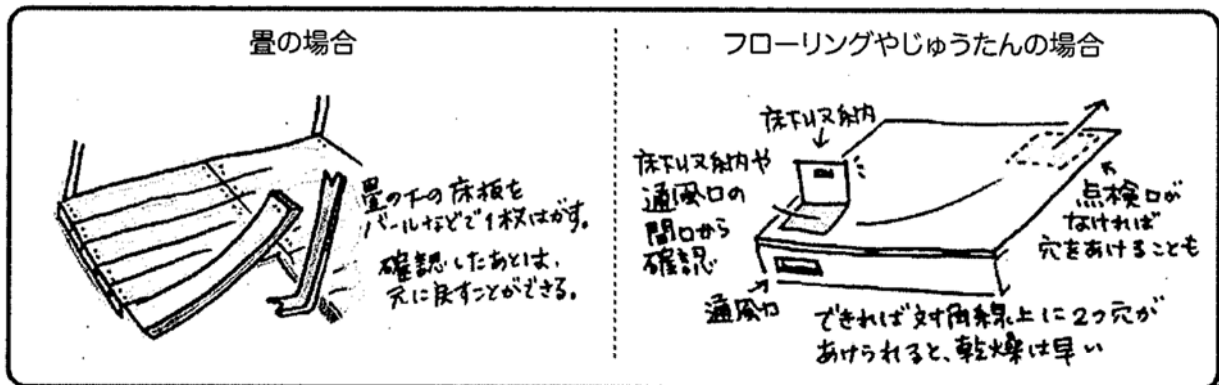 畳の場合
畳の下の床板を
バールなどで1枚はがす。
確認したあとは、
元に戻すことができる。
フローリングやじゅうたんの場合
床下収納
床下収納や
通風口の
開口から
確認
通風口
点検口が
なければ
穴をあけることも
できれば対角線上に2つ穴が
あけられると、乾燥は早い